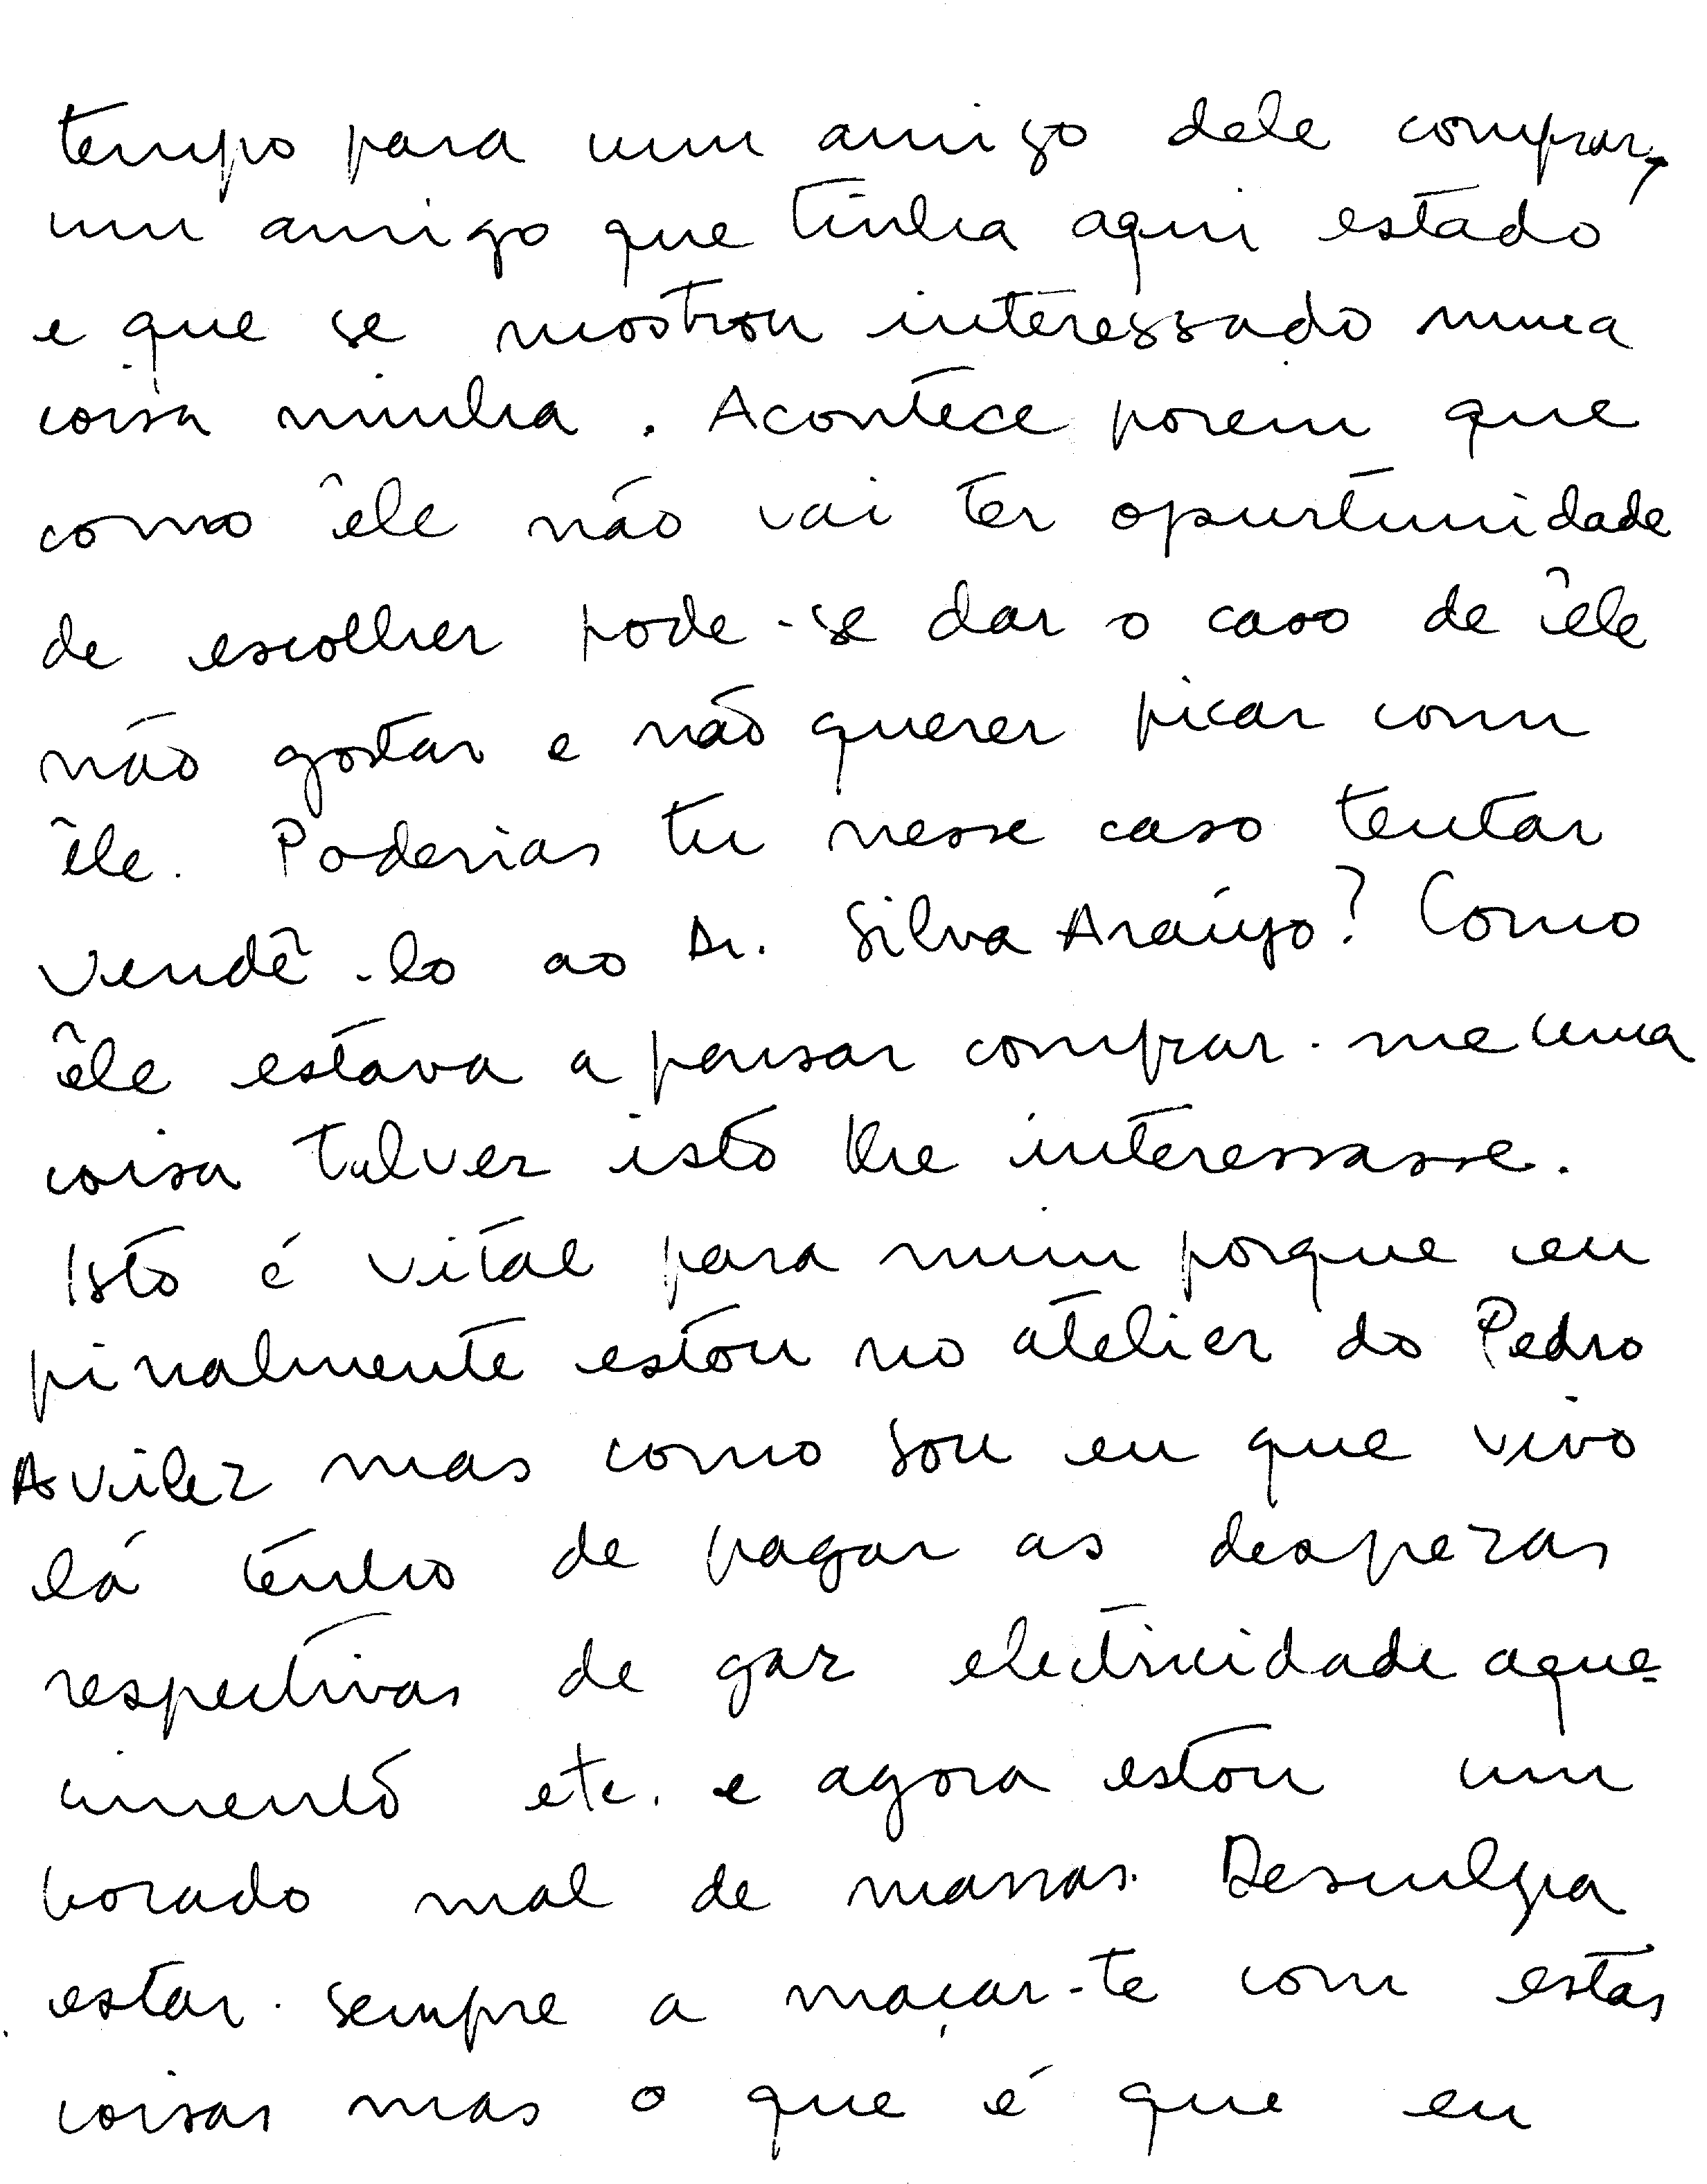 tempo para um amigo dele comprar,
um amigo que tinha aqui estado
e que se mostrou interessado numa
coisa minha. Acontece porem que
como êle não vai ter opurtunidade
de escolher pode-se dar o caso de êle
não gostar e não querer ficar com
êle. Poderias tu nesse caso tentar
vendê-lo ao Dr. Silva Araújo? Como
êle estava a pensar comprar-me uma
coisa talvez isto lhe interessasse.
Isto é vital para mim porque eu
finalmente estou no atelier do Pedro
Avilez mas como sou eu que vivo
lá tenho de pagar as despezas
respectivas de gaz electricidade aque-
cimento etc. e agora estou um
bocado mal de massas. Desculpa
estar sempre a maçar-te com estas
coisas mas o que é que eu